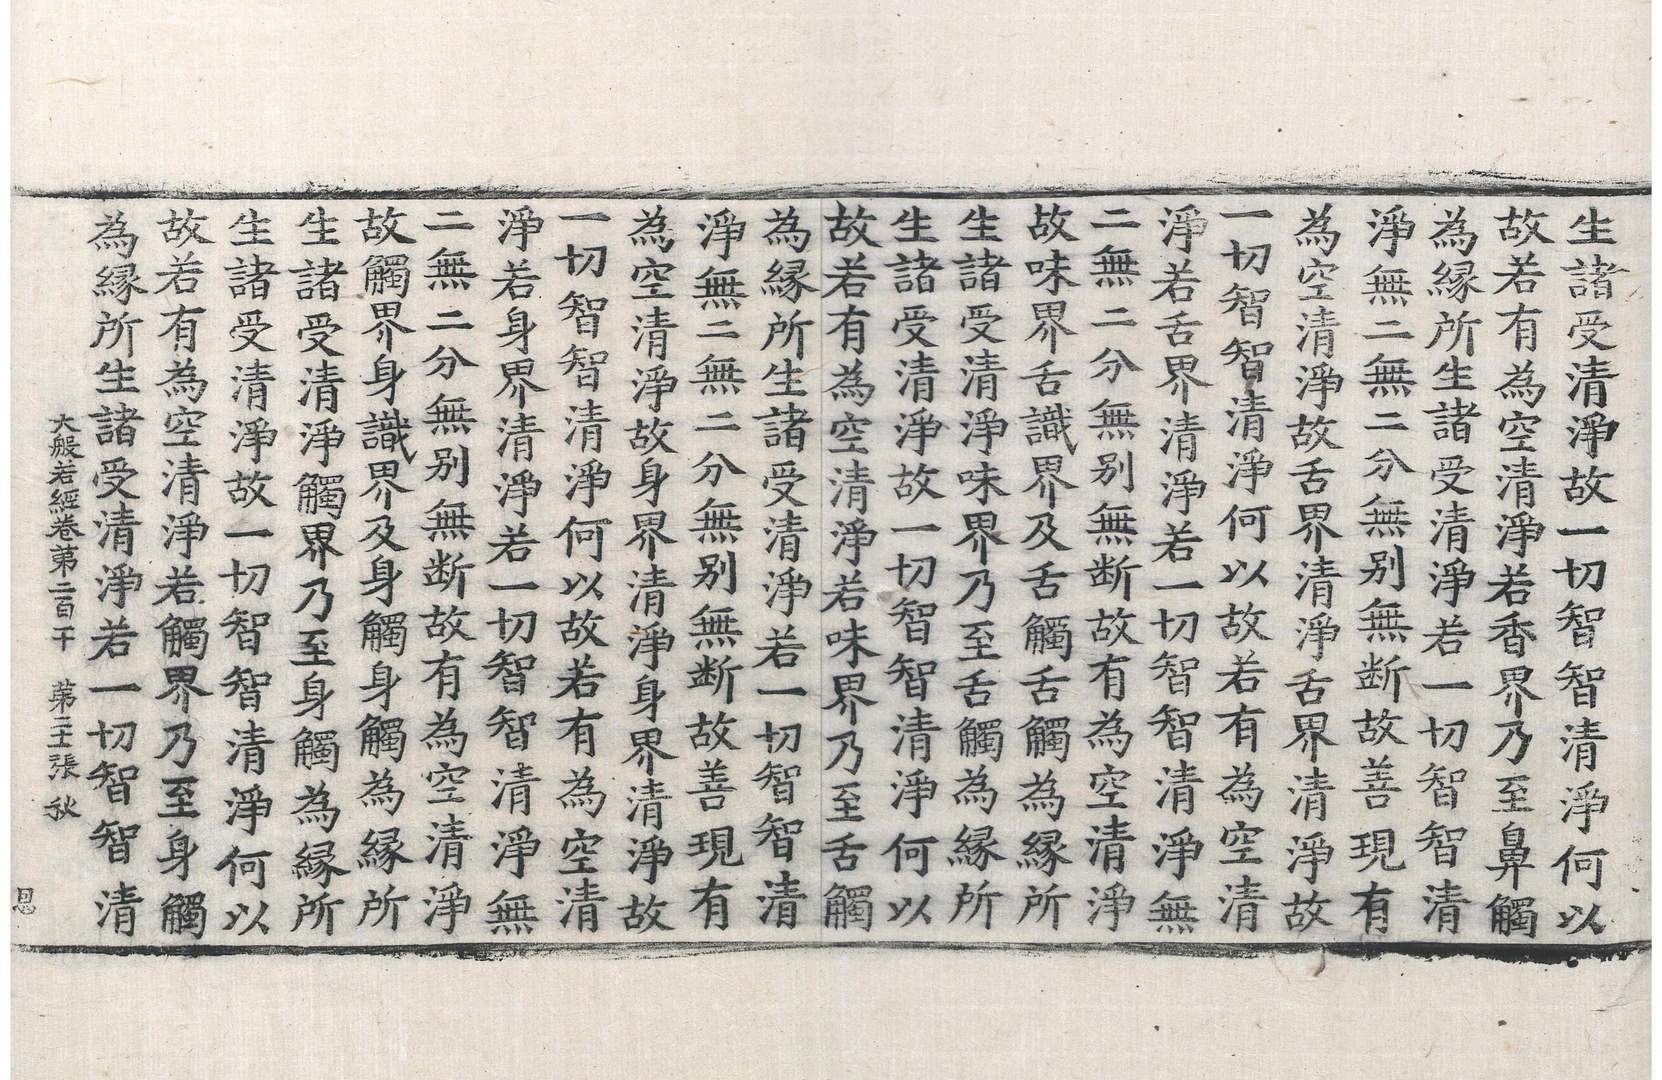 生諸受清淨故一切智智清淨何以
故若有為空清淨若香界乃至鼻觸
為縁所生諸受清淨若一切智智清
淨無二無二分無别無断故善現有
為空清淨故舌界清淨舌界清淨故
一切智智清淨何以故若有為空清
淨若舌界清淨若一切智智清淨無
二無二分無别無断故有為空清淨
故味界舌識界及舌觸舌觸為縁所
生諸受清淨味界乃至舌觸為縁所
生諸受清淨故一切智智清淨何以
故若有為空清淨若味界乃至舌觸
為縁所生諸受清淨若一切智智清
淨無二無二分無别無断故善現有
為空清淨故身界清淨身界清淨故
一切智智清淨何以故若有為空清
淨若身界清淨若一切智智清淨無
二無二分無别無断故有為空清淨
故觸界身識界及身觸身觸為縁所
生諸受清淨觸界乃至身觸為縁所
生諸受清淨故一切智智清淨何以
故若有為空清淨若觸界乃至身觸
為縁所生諸受清淨若一切智智清
大般若經卷第二百 第 張 秋
恩